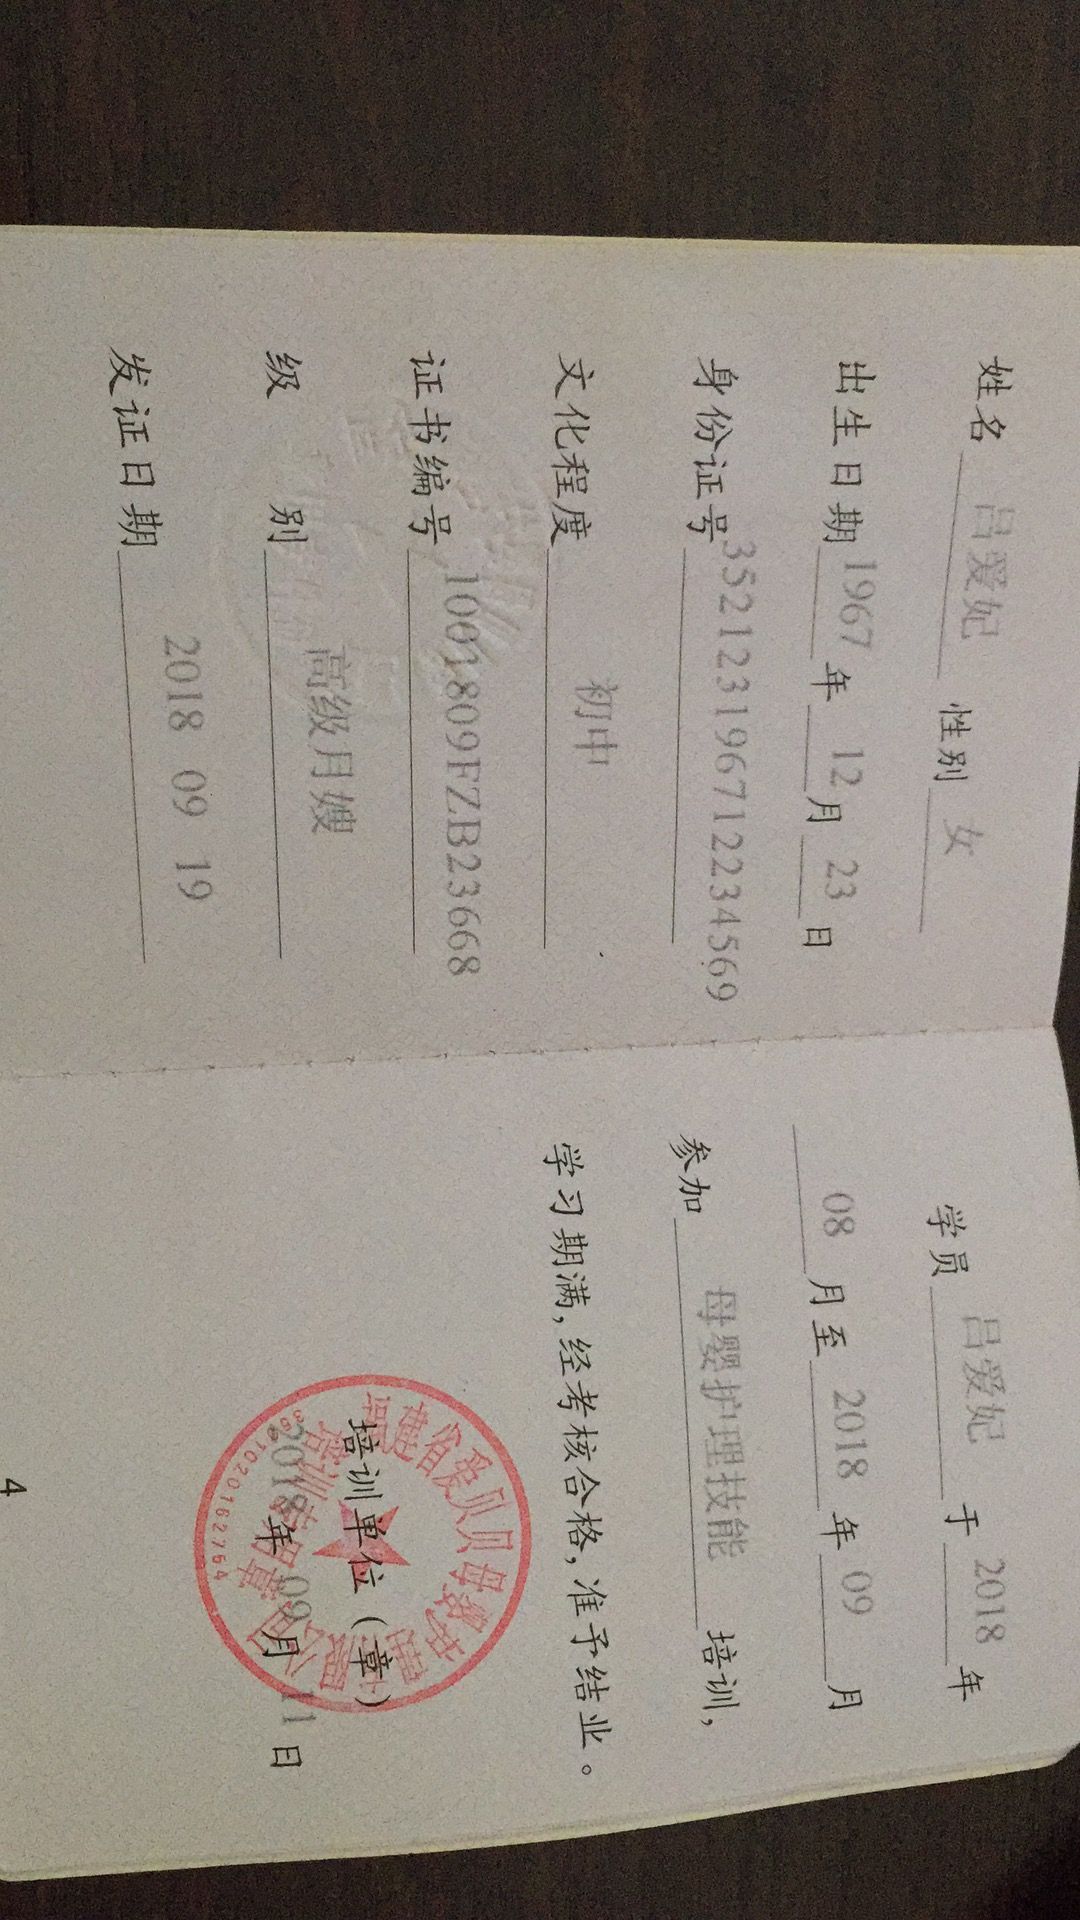 姓名 吕爱妃 性别 女
出生日期 1967 年 12 月 23 日
身份证号 352123196712234569
文化程度 初中
证书编号 1001809FZB23668
级 别 高级月嫂
发证日期 2018 09 19
学员 吕爱妃 于 2018 年
08 月至 2018 年 09 月
参加 母婴护理技能 培训,
学习期满,经考核合格,准予结业。
培训单位（章）
2018 年 09 月 11 日
福建省爱贝贝母婴
培训专用章
4